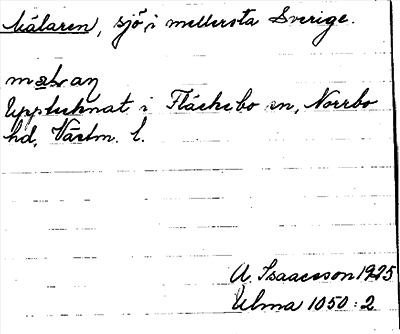 Mälaren, sjö i mellersta Sverige.
Upptecknat i Fläckebo sn, Norrbo
hd, Västm. l.
A. Isaacsson 1925
Ulma 1050:2